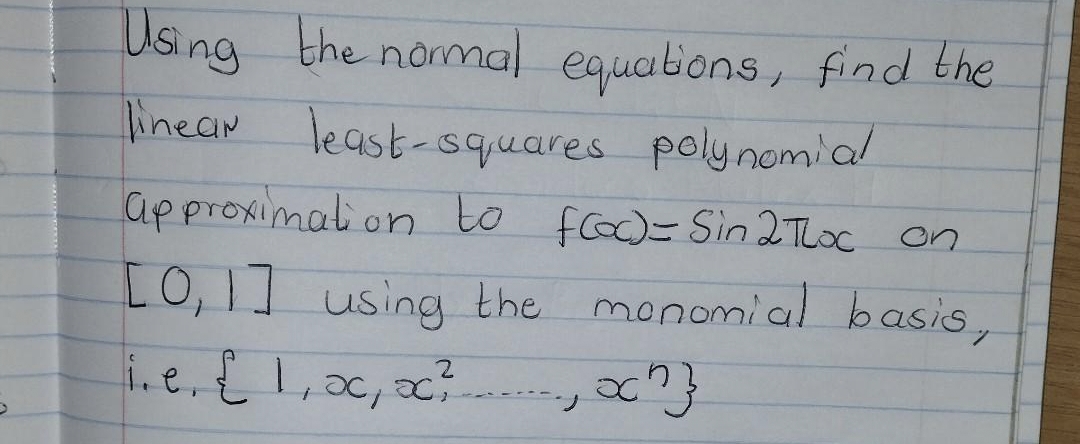 Using the normal equations, find the
linear least-squares polynomial
approximation to f(x)= Sin 2πx on
[0,1] using the monomial basis,
i.e. { 1, x, x², ......., xⁿ}